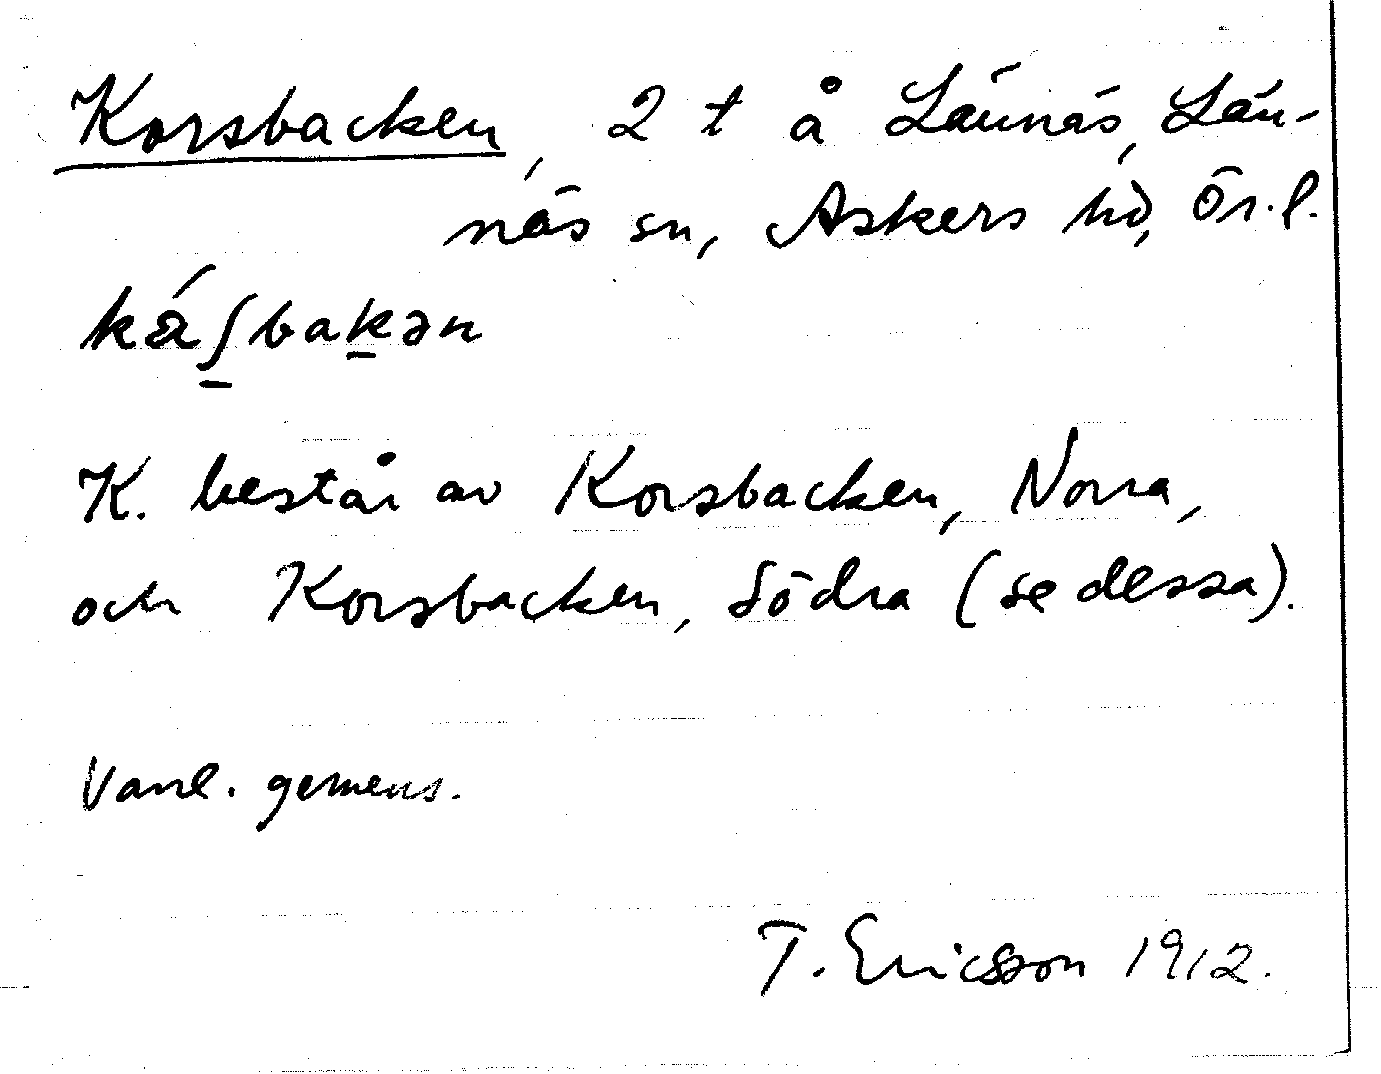 Korsbacken, 2 t å Lännäs, Län-
näs sn, Askers hd, Ör. l.
kåʃbakən
K. består av Korsbacken, Norra,
och Korsbacken, Södra (se dessa).
Vanl. gemens.
T. Ericsson 1912.